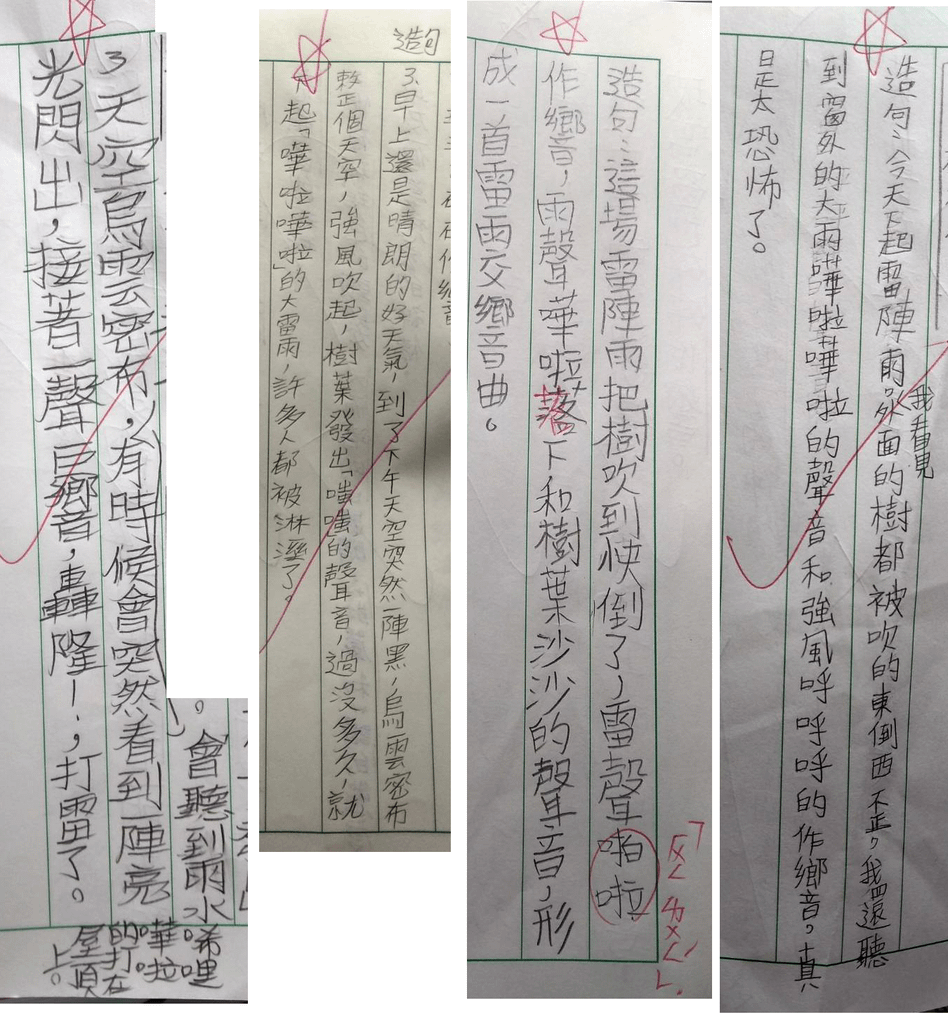 3天空烏雲密布，有時候會突然看到一陣亮
光閃出，接著一聲巨響，轟隆！，打雷了。
會聽到雨水。唏哩
嘩啦
的打在
屋頂上。
造句
3、早上還是晴朗的好天氣，到了下午天空突然一陣黑，烏雲密布
整個天空，強風吹起，樹葉發出「嗤嗤」的聲音，過沒多久，就
起「嘩啦嘩啦」的大雷雨，許多人都被淋溼了。
造句：這場雷陣雨把樹吹到快倒了，雷聲啪啦
作響，雨聲嘩啦落下和樹葉沙沙的聲音，形
成一首雷雨交響曲。
我看見
造句：今天下起雷陣雨。外面的樹都被吹的東倒西不正，我還聽
到窗外的大雨嘩啦嘩啦的聲音和強風呼呼呼的作響，真
是太恐怖了。